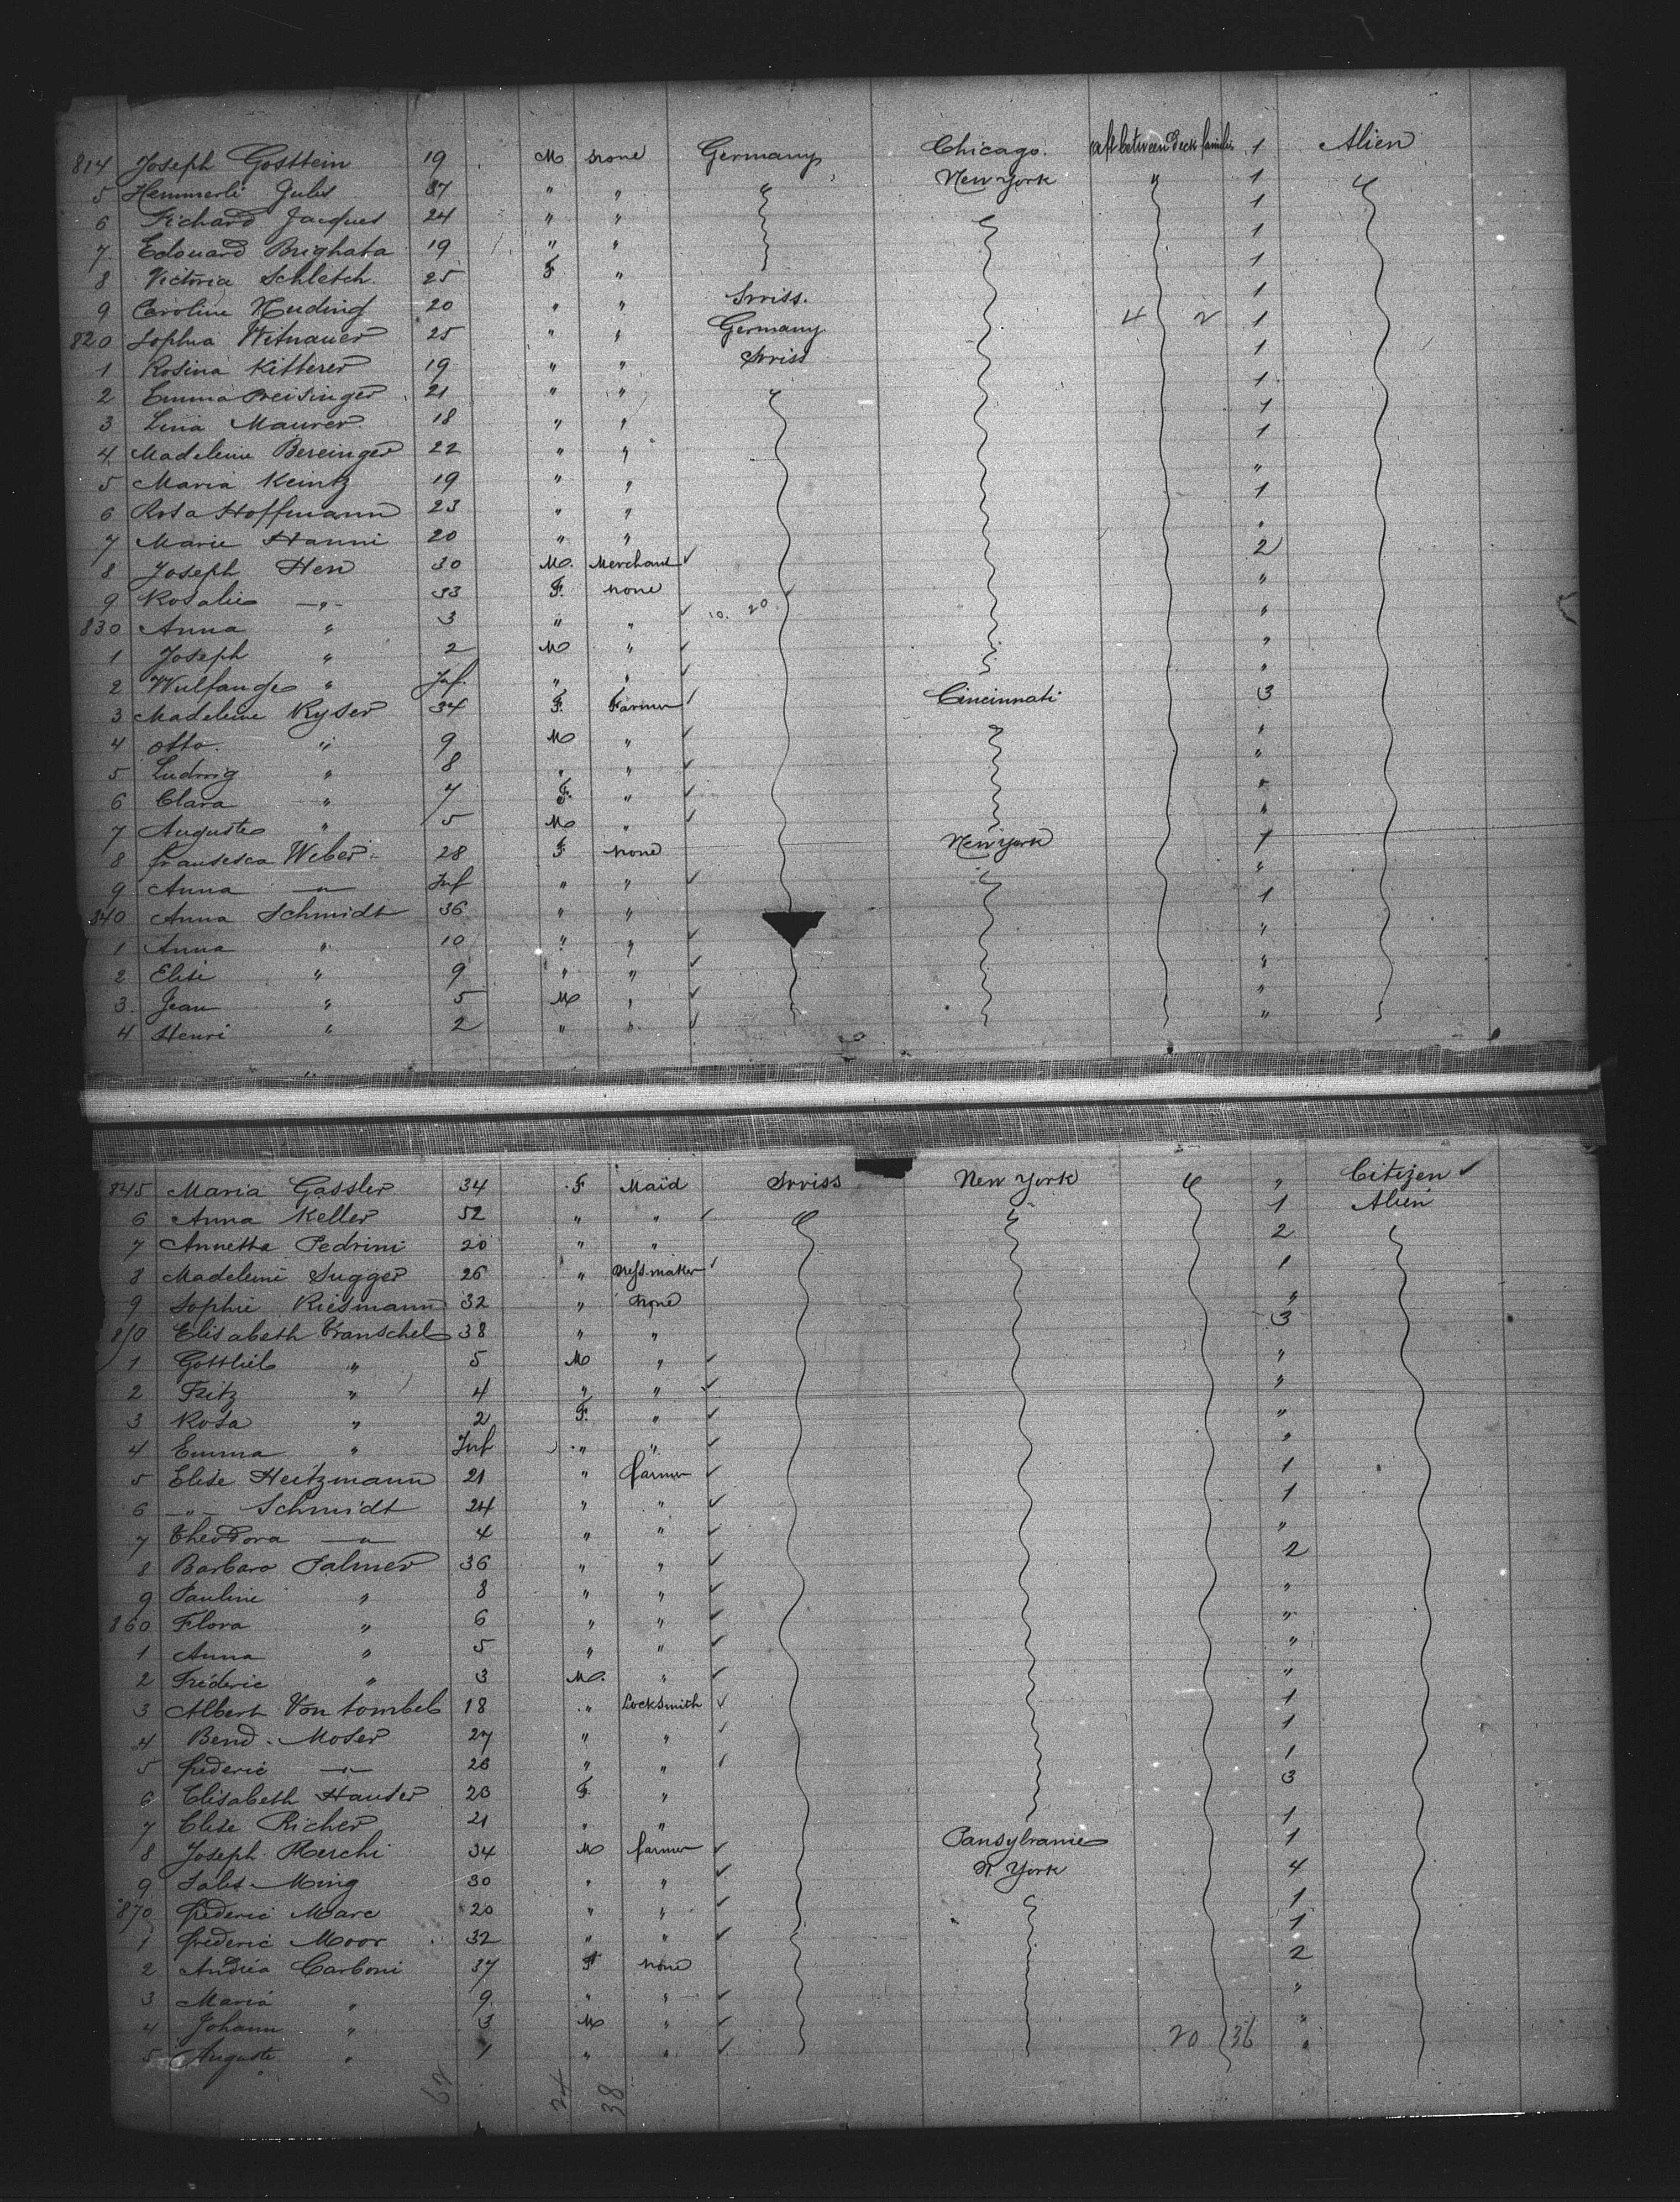 814 Joseph Gosttein 19 M none Germany Chicago. aft between deck families 1 Alien
5 Hemmerli Jules 37 " " " New York " 1 "
6 Richard Jacques 24 " " 1
7 Edouard Brighata 19 " " 1
8 Victoria Schletch 25 F " 1
9 Caroline Huding 20 " " Swiss. 1
820 Sophia Witnauer 25 " " Germany 4 2 1
1 Rosina Kitterer 19 " " Swiss 1
2 Emma Preisinger 21 " " 1
3 Lina Maurer 18 " " 1
4 Madeleine Bereinger 22 " " 1
5 Maria Keintz 19 " " "
6 Rosa Hoffmann 23 " " 1
7 Marie Hanni 20 " " "
8 Joseph Hen 30 M. Merchant 2
9 Rosalie " 33 F. none "
830 Anna " 3 " " 10. 20 "
1 Joseph " 2 M " "
2 Wulfange " Inf. " " "
3 Madeleine Kyser 34 F. Farmer Cincinnati 3
4 Otto " 9 M " "
5 Ludwig " 8 " " "
6 Clara " 7 F. " "
7 Auguste " 5 M " "
8 fransesca Weber 28 F none New York 1
9 Anna " Inf " " "
340 Anna Schmidt 36 " " 1
1 Anna " 10 " " "
2 Elise " 9 " " "
3 Jean " 5 M " "
4 Henri " 2 " " "
845 Maria Gassler 34 F Maid Swiss New York " " Citizen
6 Anna Keller 52 " " " " 1 Alien
7 Annetta Pedrini 20 " " 2
8 Madeleine Sugger 26 " maker 1
9 Sophie Riesmann 32 " none "
850 Elisabeth Transchel 38 " " 3
1 Gottlieb " 5 M " "
2 Fritz " 4 " " "
3 Rosa " 2 F. " "
4 Emma " Inf " " "
5 Elise Heitzmann 21 " farmer 1
6 " Schmidt 24 " " 1
7 Theodora " 4 " " "
8 Barbara Salmer 36 " " 2
9 Pauline " 8 " " "
860 Flora " 6 " " "
1 Anna " 5 " " "
2 Fréderic " 3 M. " "
3 Albert Von tombel 18 " Locksmith 1
4 Bend. Moser 27 " " 1
5 frederic " 26 " " 1
6 Elisabeth Hauser 20 F. " 3
7 Elise Richer 21 " " 1
8 Joseph Rerchi 34 M farmer Pansylvanie 1
9 Sales Ming 30 " " N. York 4
870 frederic Marc 20 " " 1
1 frederic Moor 32 " " 1
2 Andréa Carboni 37 F none 2
3 Maria " 9 " " "
4 Johann " 3 M " 20 36 "
5 Auguste " 1 " " "
62 24 38